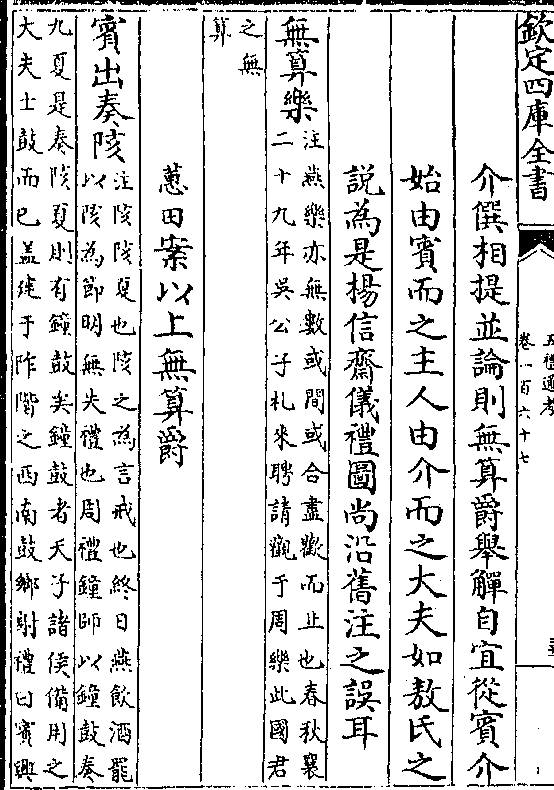 欽定四庫全書
五禮通考
卷一百六十七
介僎相提並論則無算爵舉觶自宜從賓介
始由賓而之主人由介而之大夫如敖氏之
說為是楊信齋儀禮圖尚沿舊注之誤耳
無算樂
注燕樂亦無數或間或合盡歡而止也春秋襄
二十九年吳公子札來聘請觀于周樂此國君
之無
算
蕙田案以上無算爵
賓出奏陔
注陔陔夏也陔之為言戒也終日燕飲酒罷
以陔為節明無失禮也周禮鐘師以鐘鼓奏
九夏是奏陔夏則有鐘鼓矣鐘鼓者天子諸侯備用之
大夫士鼓而已蓋建于阼階之西南鼓鄉射禮曰賓興